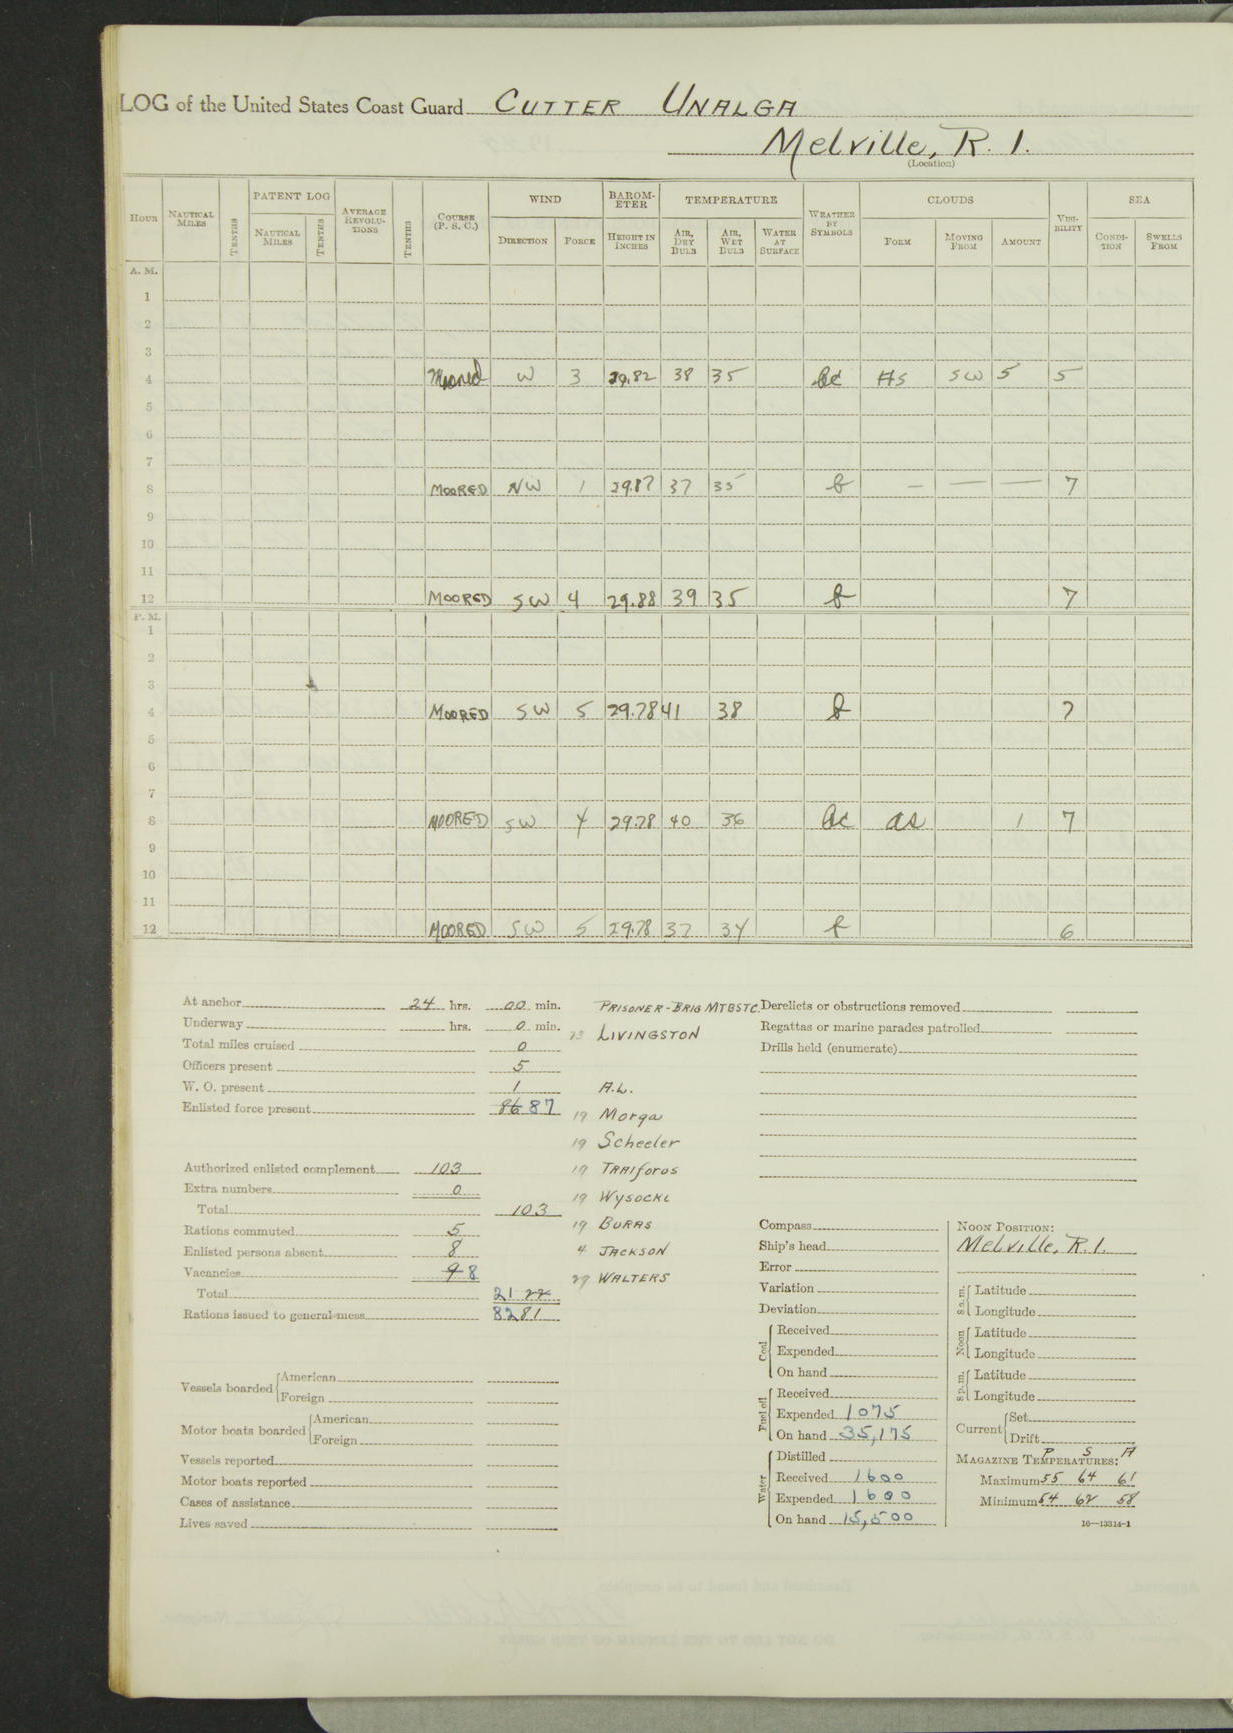 LOG of the United States Coast Guard CUTTER UNALGA
Melville, R. I.
(Location)
HOUR NAUTICAL MILES TENTHS PATENT LOG NAUTICAL MILES TENTHS AVERAGE REVOLUTIONS TENTHS COURSE (P. S. C.) WIND DIRECTION FORCE BAROMETER HEIGHT IN INCHES TEMPERATURE AIR, DRY BULB AIR, WET BULB WATER AT SURFACE WEATHER BY SYMBOLS CLOUDS FORM MOVING FROM AMOUNT VISIBILITY SEA CONDITION SWELLS FROM
A. M.
1
2
3
4 Moored W 3 29.82 38 35 bc SW 5 5
5
6
7
8 MOORED NW 1 29.87 37 35 b — — — 7
9
10
11
12 MOORED SW 4 29.88 39 35 b 7
P. M.
1
2
3
4 MOORED SW 5 29.78 41 38 b 7
5
6
7
8 MOORED SW 4 29.78 40 36 bc as 1 7
9
10
11
12 MOORED SW 5 29.78 37 34 6
At anchor 24 hrs. 00 min.
Underway hrs. 0 min.
Total miles cruised 0
Officers present 5
W. O. present 1
Enlisted force present 86 87
Authorized enlisted complement 103
Extra numbers 0
Total 103
Rations commuted 5
Enlisted persons absent 8
Vacancies 9 8
Total 21 22
Rations issued to general mess 82 81
Vessels boarded American
Foreign
Motor boats boarded American
Foreign
Vessels reported
Motor boats reported
Cases of assistance
Lives saved
PRISONER - BRIG MTBSTC
LIVINGSTON
A.L.
19 Morga
19 Scheeler
19 TRAIforos
19 WYSOCKI
19 BURAS
4 JACKSON
29 WALTERS
Derelicts or obstructions removed
Regattas or marine parades patrolled
Drills held (enumerate)
Compass
Ship's head
Error
Variation
Deviation
Coal Received
Expended
On hand
Fuel oil Received
Expended 1075
On hand 35,175
Water Distilled
Received 1600
Expended 1600
On hand 15,500
NOON POSITION:
Melville, R.I.
8 a.m. Latitude
Longitude
Noon Latitude
Longitude
8 p.m. Latitude
Longitude
Current Set
Drift
P S A
MAGAZINE TEMPERATURES:
Maximum 55 64 61
Minimum 54 62 58
16—13314-1